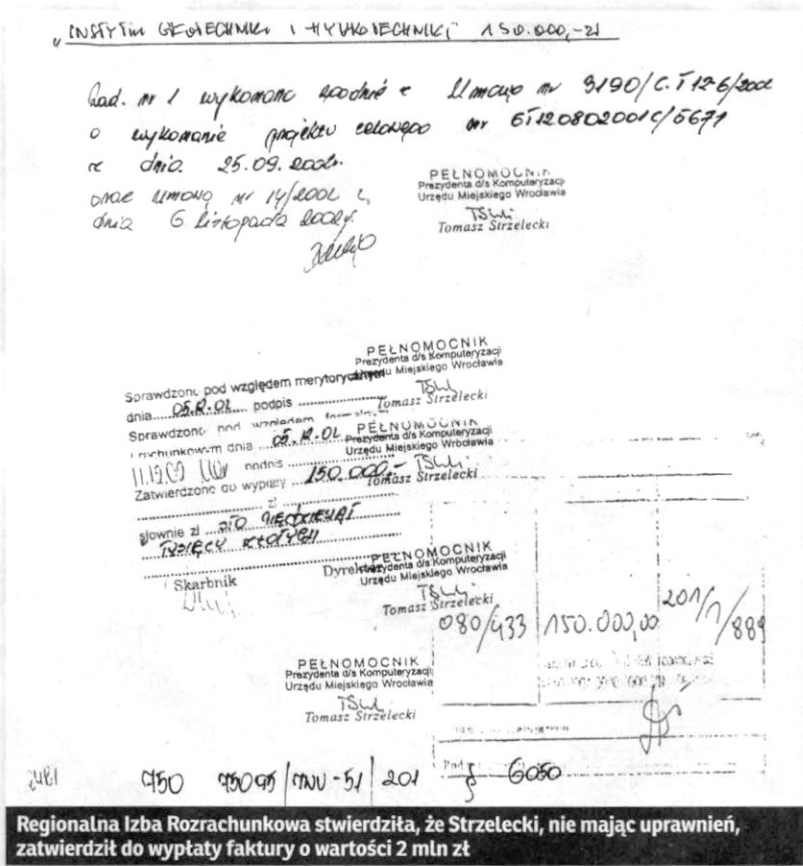 " INSTYTUT GEOTECHNIKI I HYDROTECHNIKI" 150.000,-zł
Zad. nr 1 wykonano zgodnie z Umową nr 3190/C.T12-6/2002
o wykonanie projektu celowego nr 6T120802001C/5671
z dnia 25.09.2002r.
oraz umową nr 14/2002 z
dnia 6 listopada 2002r.
PEŁNOMOCNIK
Prezydenta d/s Komputeryzacji
Urzędu Miejskiego Wrocławia
Tomasz Strzelecki
PEŁNOMOCNIK
Prezydenta d/s Komputeryzacji
Urzędu Miejskiego Wrocławia
Tomasz Strzelecki
Sprawdzono pod względem merytorycznym
dnia 05.12.02 podpis
Sprawdzono pod względem formalnym
i rachunkowym dnia 05.12.02
PEŁNOMOCNIK
Prezydenta d/s Komputeryzacji
Urzędu Miejskiego Wrocławia
Tomasz Strzelecki
podpis
Zatwierdzono do wypłaty 150.000,-
zł
słownie zł STO PIĘĆDZIESIĄT
TYSIĘCY ZŁOTYCH
Skarbnik
Dyrektor
PEŁNOMOCNIK
Prezydenta d/s Komputeryzacji
Urzędu Miejskiego Wrocławia
Tomasz Strzelecki
080/433 150.000,00 201/1/889
PEŁNOMOCNIK
Prezydenta d/s Komputeryzacji
Urzędu Miejskiego Wrocławia
Tomasz Strzelecki
750 75095 201 § 6050
Regionalna Izba Rozrachunkowa stwierdziła, że Strzelecki, nie mając uprawnień,
zatwierdził do wypłaty faktury o wartości 2 mln zł